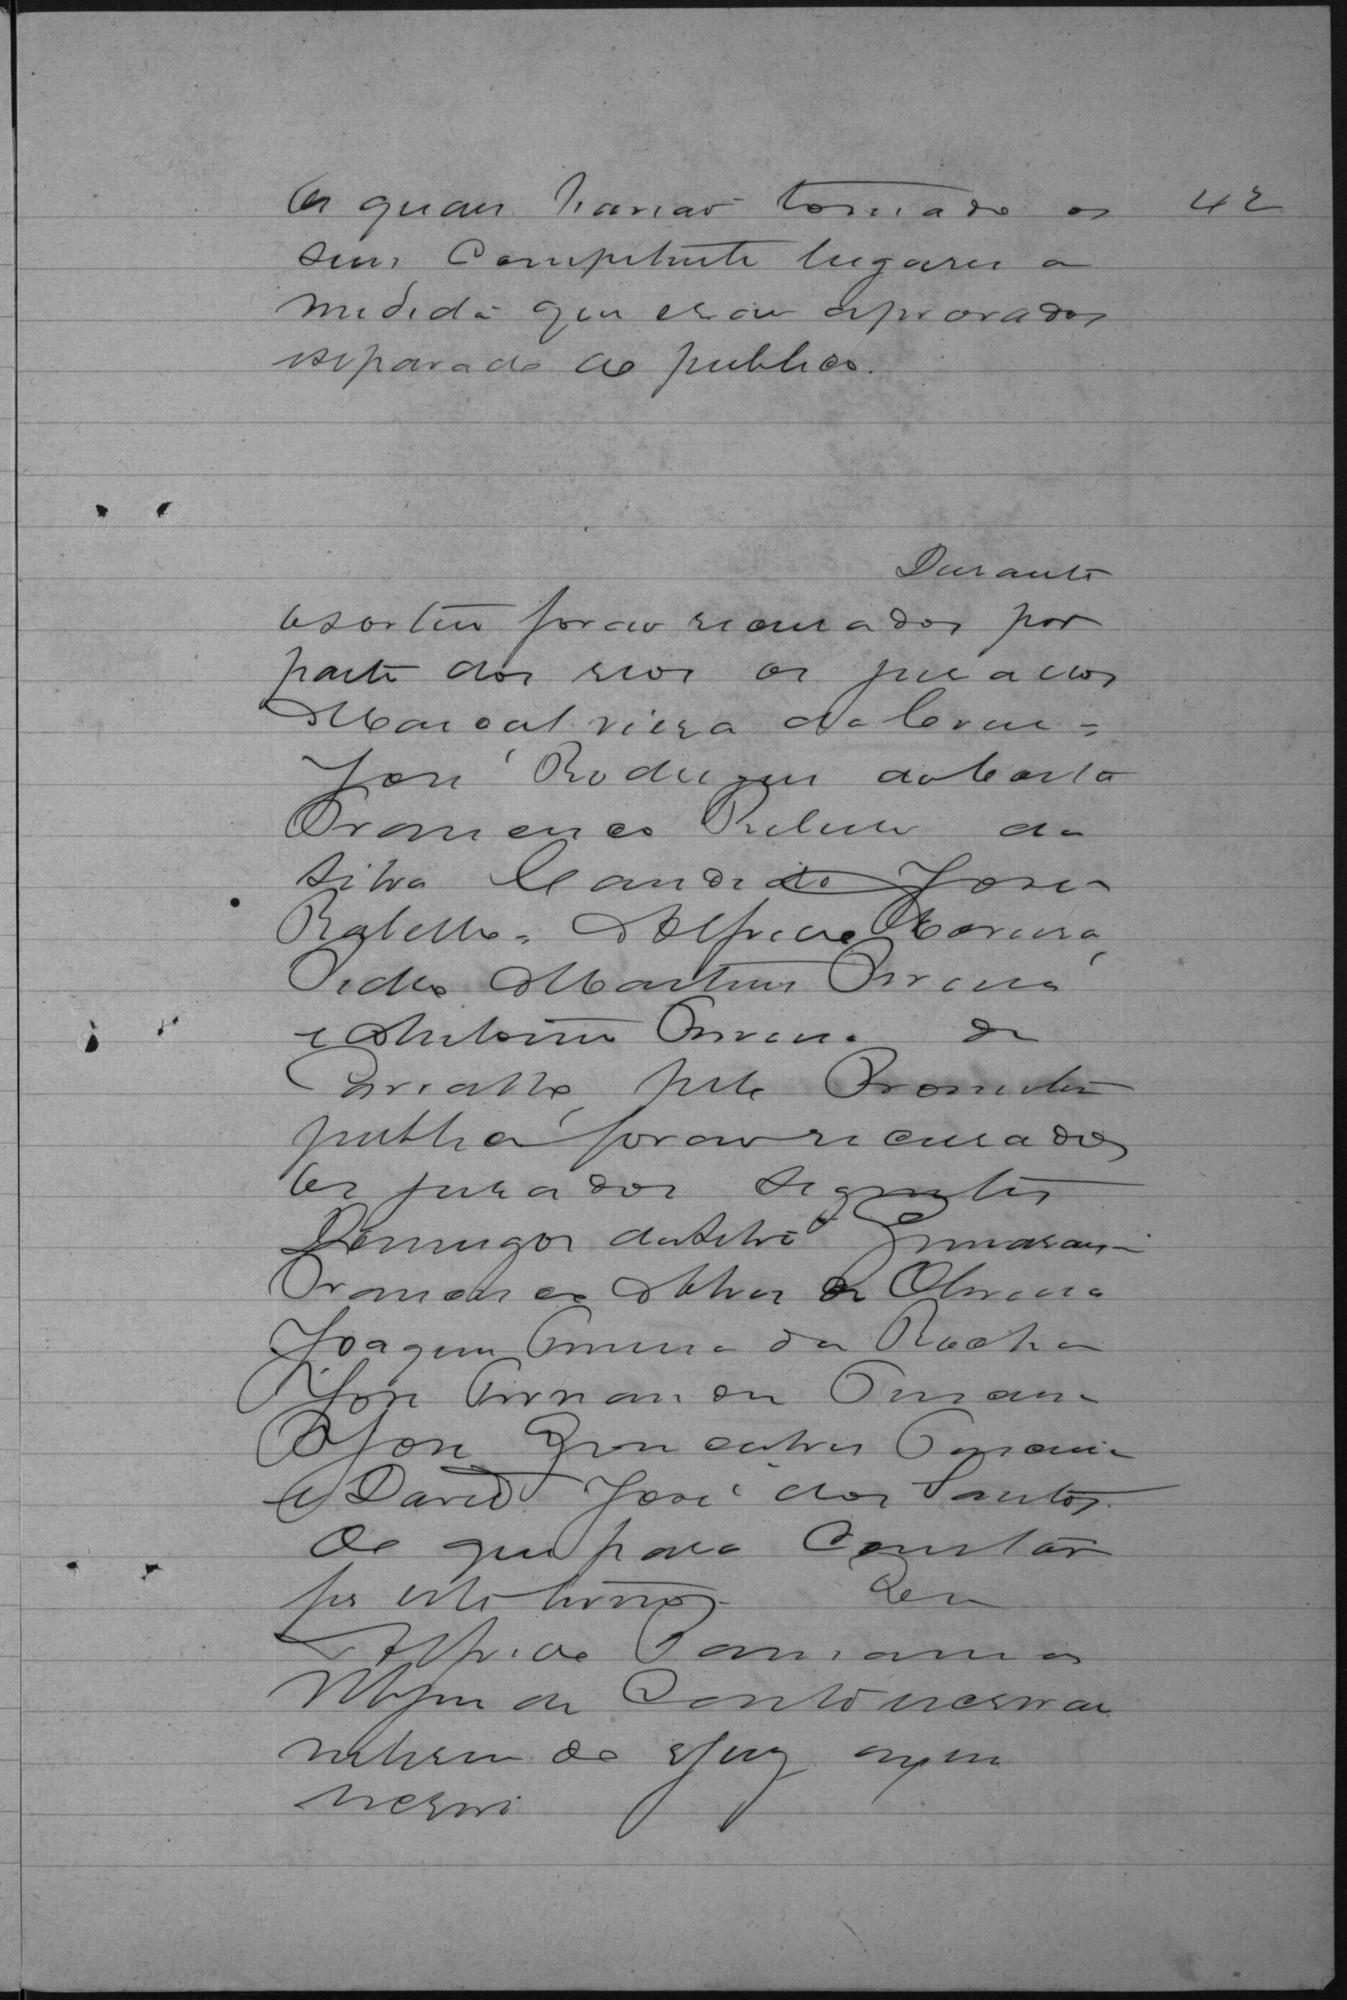 Os quaes haviaõ tomado os 42
seus Competente lugares a
medida que eraõ aprovados
separado do publico.
Durante
o sorteio foraõ recusados por
parte dos reos os jurados
Marcal vieira da Crus =
José Rodrigues da Costa
Francisco Rabello da
Silva Candido José
Rabello = Alfredo Moreira
Pedro Martins Pereira
e Antonio Pereira de
Carvalho, pelo Promotor
publico foraõ recusados
os jurados seguintes
Domingos da Silva Guimarães
Francisco Alves de Oliveira
Joaquim Pereira da Rocha
José Fernandes
José Goncalves
e David José dos Santos.
Do que para Constar
fis este termo. Eu
Alfredo
de Couto escrivaõ
interino do Jury a que
escrevi